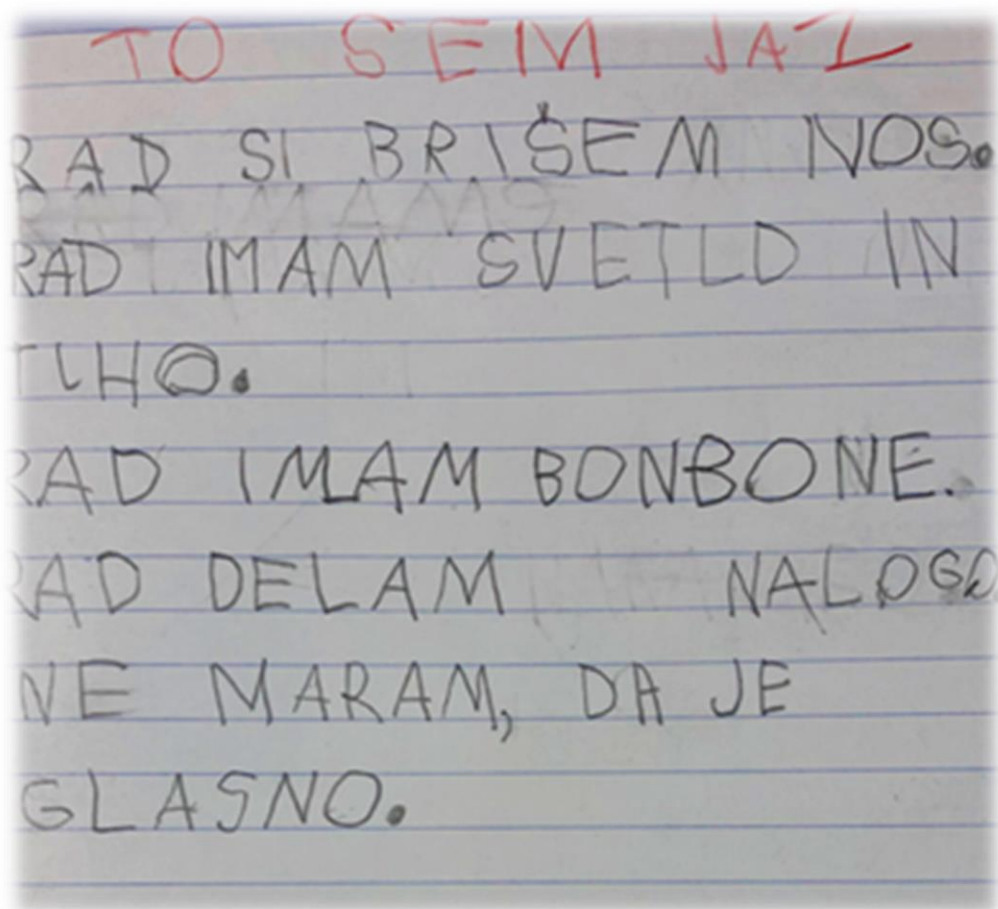 TO SEM JAZ
RAD SI BRIŠEM NOS.
RAD IMAM SVETLO IN
TIHO.
RAD IMAM BONBONE.
RAD DELAM NALOGO
NE MARAM, DA JE
GLASNO.